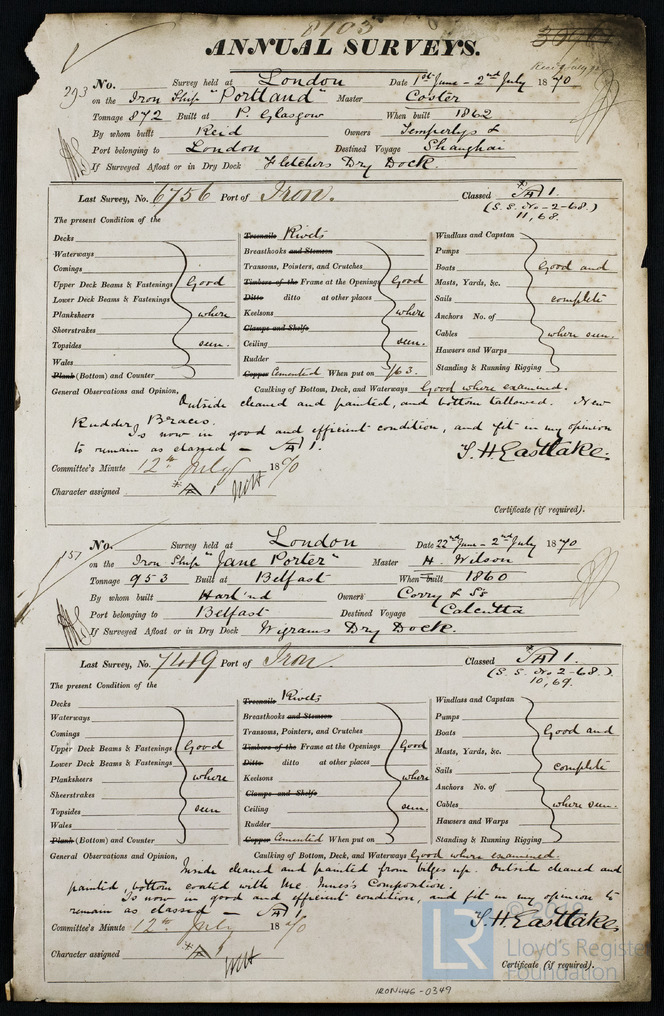 8103
ANNUAL SURVEYS.
293 No. Survey held at London Date 1st June - 2nd July 1870
on the Iron Ship "Portland" Master Coster
Tonnage 872 Built at P. Glasgow When built 1862
By whom built Reid Owners Temperlys &
Port belonging to London Destined Voyage Shanghai
If Surveyed Afloat or in Dry Dock Fletchers Dry Dock.
Last Survey, No. 6756 Port of Iron. Classed A 1.
(S. S. No-2-68.)
11,68.
The present Condition of the
Decks
Waterways
Comings
Upper Deck Beams & Fastenings
Lower Deck Beams & Fastenings
Planksheers
Sheerstrakes
Topsides
Wales
Plank (Bottom) and Counter
Good
where
seen.
Treenails Rivets
Breasthooks and Stemson
Transoms, Pointers, and Crutches
Timbers of the Frame at the Openings
Ditto ditto at other places
Keelsons
Clamps and Shelfs
Ceiling
Rudder
Copper Cemented When put on /63.
Good
where
seen.
Windlass and Capstan
Pumps
Boats
Masts, Yards, &c.
Sails
Anchors No. of
Cables
Hawsers and Warps
Standing & Running Rigging
Good and
complete
where seen.
General Observations and Opinion, Caulking of Bottom, Deck, and Waterways Good where examined.
Outside cleaned and painted, and bottom tallowed. New
Rudder Braces.
Is now in good and efficient condition, and fit in my opinion
to remain as classed — A 1.
T. H. Eastlake.
Committee's Minute 12th July 1870
Character assigned A 1
Certificate (if required).
151 No. Survey held at London Date 22nd June - 2nd July 1870
on the Iron Ship "Jane Porter" Master H. Wilson
Tonnage 953 Built at Belfast When built 1860
By whom built Harl'nd Owners Corry & Ss
Port belonging to Belfast Destined Voyage Calcutta
If Surveyed Afloat or in Dry Dock Wigrams Dry Dock.
Last Survey, No. 7449 Port of Iron. Classed A 1.
(S. S. No 2-68.)
10,69.
The present Condition of the
Decks
Waterways
Comings
Upper Deck Beams & Fastenings
Lower Deck Beams & Fastenings
Planksheers
Sheerstrakes
Topsides
Wales
Plank (Bottom) and Counter
Good
where
seen
Treenails Rivets
Breasthooks and Stemson
Transoms, Pointers, and Crutches
Timbers of the Frame at the Openings
Ditto ditto at other places
Keelsons
Clamps and Shelfs
Ceiling
Rudder
Copper Cemented When put on
Good
where
seen.
Windlass and Capstan
Pumps
Boats
Masts, Yards, &c.
Sails
Anchors No. of
Cables
Hawsers and Warps
Standing & Running Rigging
Good and
complete
where seen.
General Observations and Opinion, Caulking of Bottom, Deck, and Waterways Good where examined.
Inside cleaned and painted from bilges up. Outside cleaned and
painted, bottom coated with Mc Innes's Composition.
Is now in good and efficient condition, and fit in my opinion to
remain as classed — A 1.
T. H. Eastlake.
Committee's Minute 12th July 1870
Character assigned A 1
Certificate (if required).
IRON446-0349
LR © 2019
Lloyd's Register
Foundation